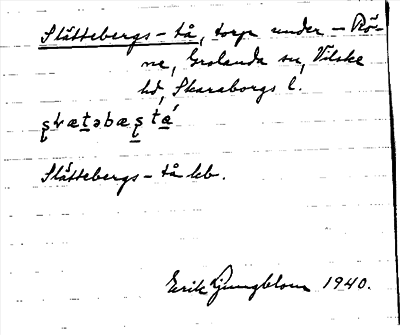 Slättebergs-tå, torp under - Rö-
ne, Grolanda sn, Vilske
hd, Skaraborgs l.
Slättebergs-tå lb.
Erik Ljungblom 1940.